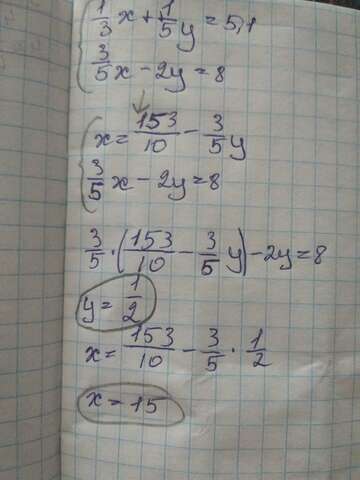 1/3 x + 1/5 y = 5,1
3/5 x - 2y = 8
x = 153/10 - 3/5 y
3/5 x - 2y = 8
3/5 · (153/10 - 3/5 y) - 2y = 8
y = 1/2
x = 153/10 - 3/5 · 1/2
x = 15